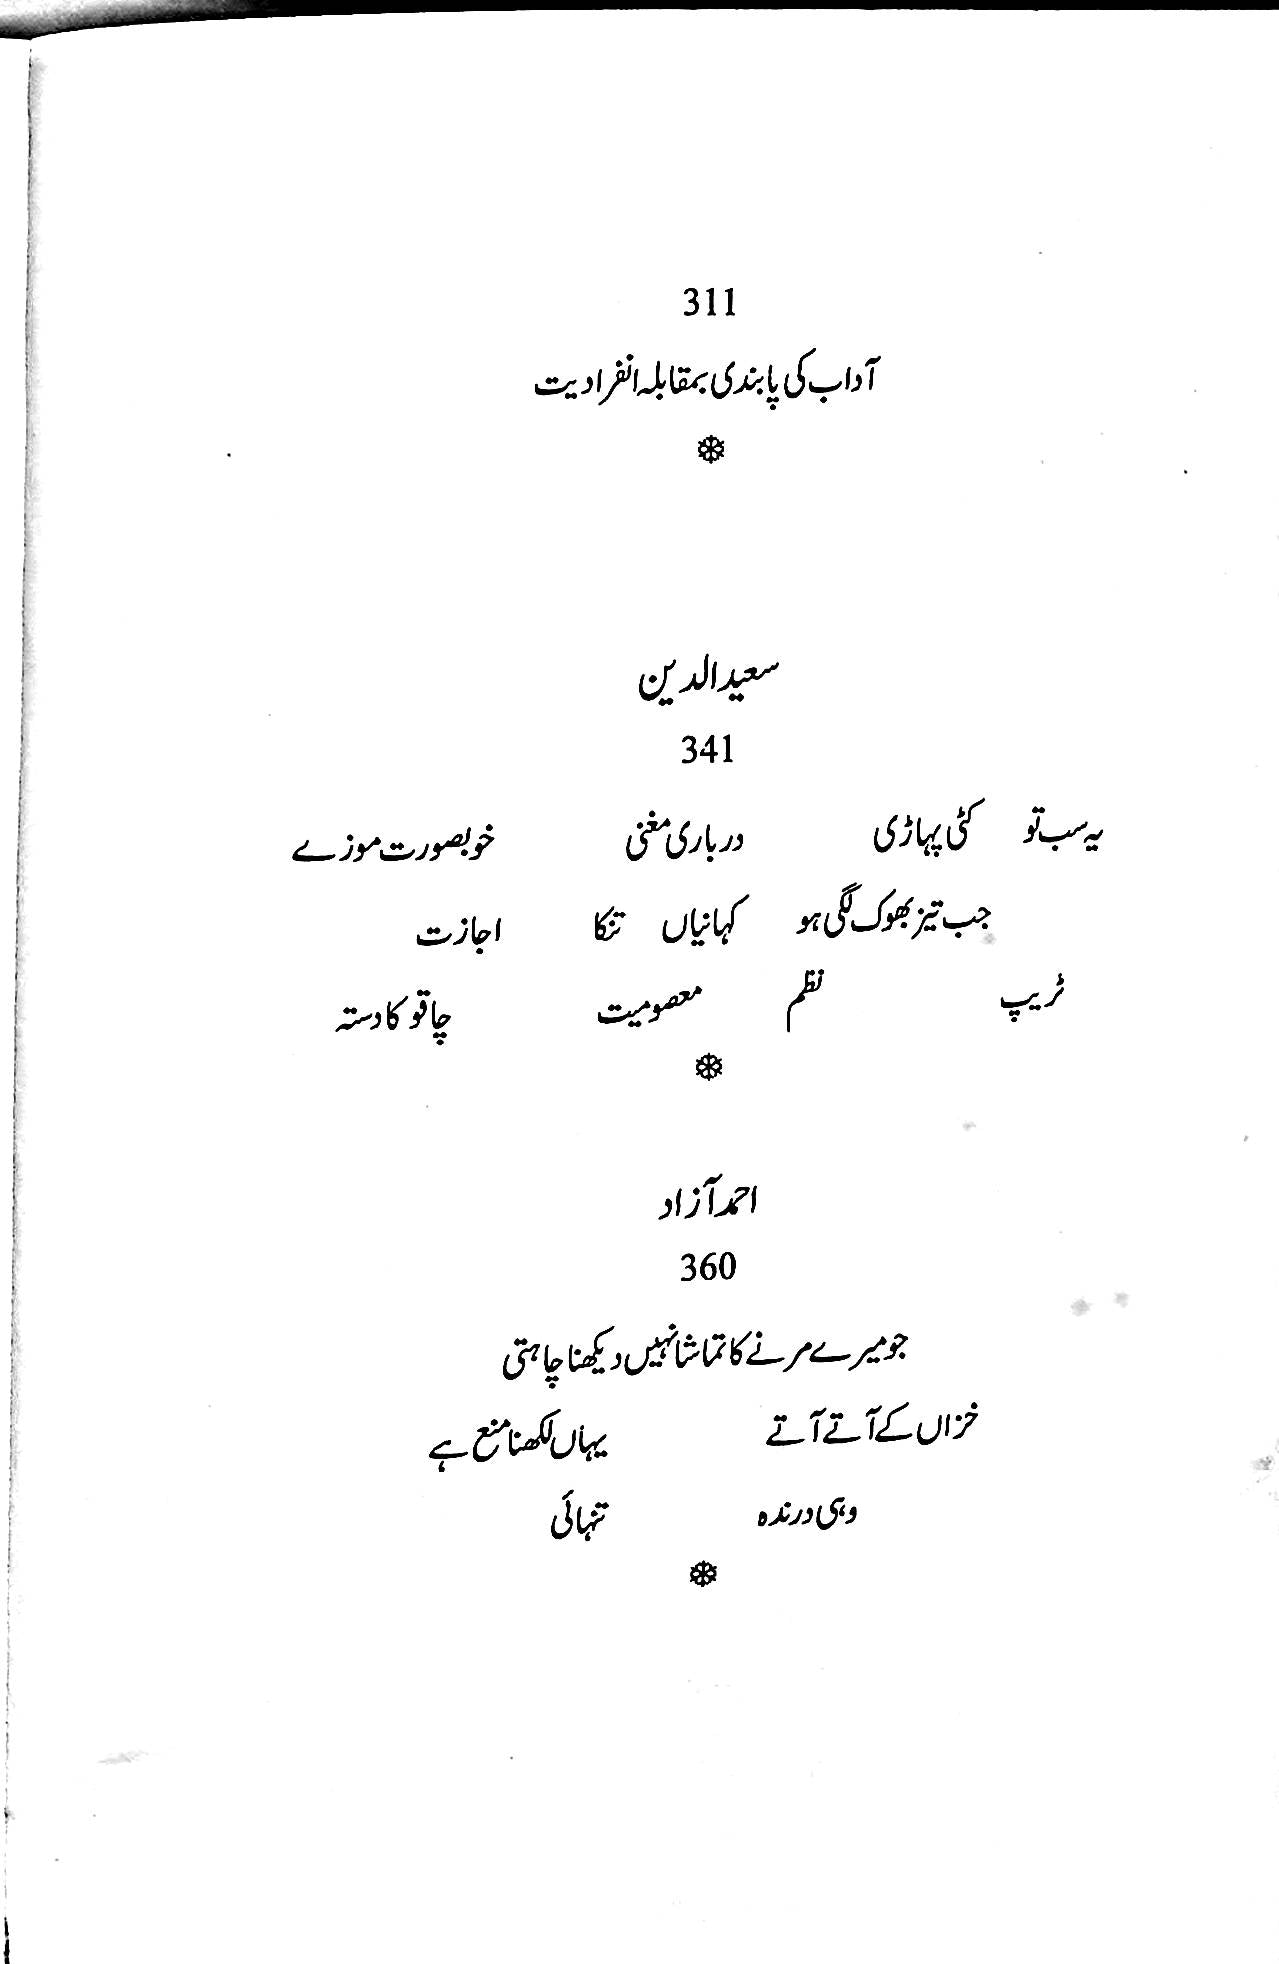 311
آداب کی پابندی بمقابلہ انفرادیت
سعید الدین
341
یہ سب تو کٹی پہاڑی درباری مغنی خوبصورت موزے
جب تیز بھوک لگی ہو کہانیاں تنکا اجازت
ٹریپ نظم معصومیت چاقو کا دستہ
احمد آزاد
360
جو میرے مرنے کا تماشا نہیں دیکھنا چاہتی
خزاں کے آتے آتے یہاں لکھنا منع ہے
وہی درندہ تنہائی